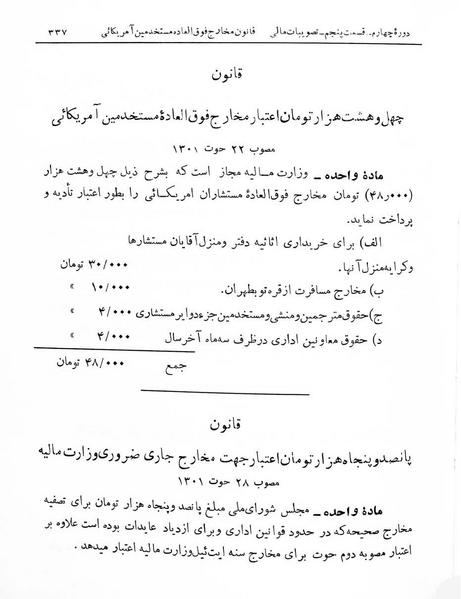 دورهٔ چهارم. قسمت پنجم - تصویبات مالی قانون مخارج فوق العاده مستخدمین آمریکائی ۳۳۷
قانون
چهل و هشت هزار تومان اعتبار مخارج فوق العادهٔ مستخدمین آمریکائی
مصوب ۲۲ حوت ۱۳۰۱
مادهٔ واحده - وزارت مالیه مجاز است که بشرح ذیل چهل وهشت هزار
(۴۸٫۰۰۰) تومان مخارج فوق العادهٔ مستشاران امریکائی را بطور اعتبار تأدیه و
پرداخت نماید.
الف) برای خریداری اثاثیه دفتر ومنزل آقایان مستشارها
وکرایه منزل آنها. ۳۰/۰۰۰ تومان
ب) مخارج مسافرت از قره تو بطهران. ۱۰/۰۰۰ »
ج) حقوق مترجمین و منشی و مستخدمین جزء دوایر مستشاری ۴/۰۰۰ »
د) حقوق معاونین اداری درظرف سه ماه آخر سال ۴/۰۰۰ »
جمع ۴۸/۰۰۰ تومان
قانون
پانصد و پنجاه هزار تومان اعتبار جهت مخارج جاری ضروری وزارت مالیه
مصوب ۲۸ حوت ۱۳۰۱
مادهٔ واحده - مجلس شورای ملی مبلغ پانصد وپنجاه هزار تومان برای تصفیه
مخارج صحیحه که در حدود قوانین اداری وبرای ازدیاد عایدات بوده است علاوه بر
اعتبار مصوبه دوم حوت برای مخارج سنه ایت ئیل وزارت مالیه اعتبار میدهد .